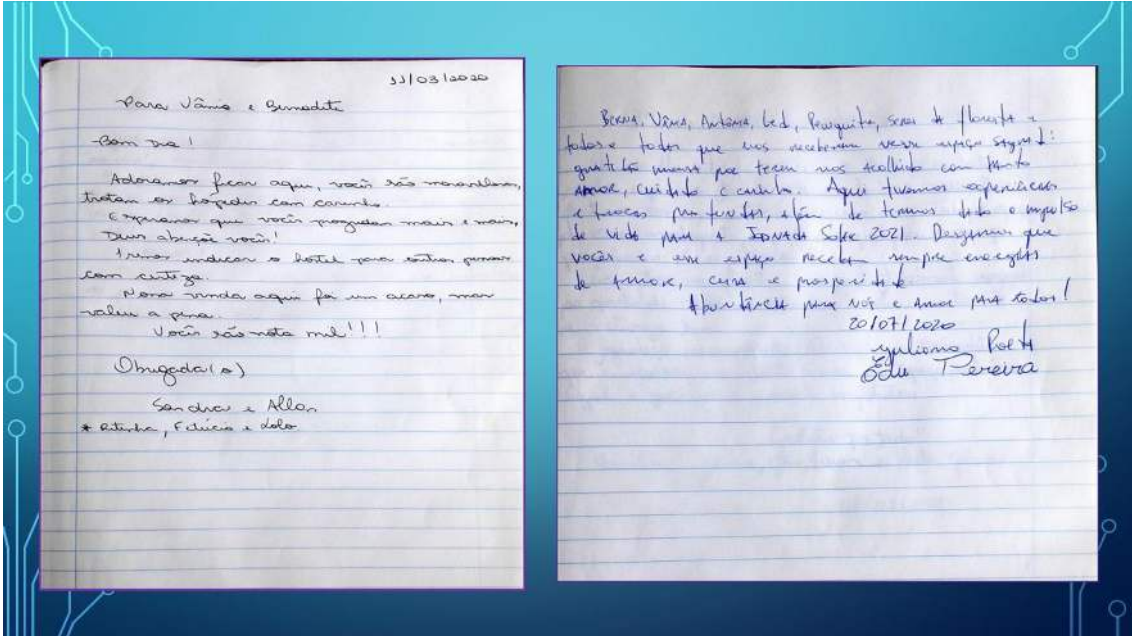 11/03/2020
Para Vânia e Bernadete
Bom dia!
Adoramos ficar aqui, vocês são maravilhosos,
tratam os hóspedes com carinho.
Esperamos que vocês progridam mais e mais,
Deus abençoe vocês!
Iremos indicar o hotel para outras pessoas
com certeza.
Nossa vinda aqui foi um acaso, mas
valeu a pena.
Vocês são nota mil!!!
Obrigada(o)
Sandra e Allan
* Ritinha, Felício e Lolo
Berna, Vânia, Antônia, Led, seres da floresta e
todas e todos que nos receberam nesse espaço sagrado:
gratidão imensa por terem nos acolhido com tanto
amor, cuidado e carinho. Aqui tivemos experiências
e trocas profundas, além de termos dado o impulso
de vida para a Jornada Solar 2021. Desejamos que
vocês e esse espaço recebam sempre energias
de amor, cura e prosperidade.
Abundância para nós e amor para todos!
20/07/2020
Juliano Poeta
Edu Pereira